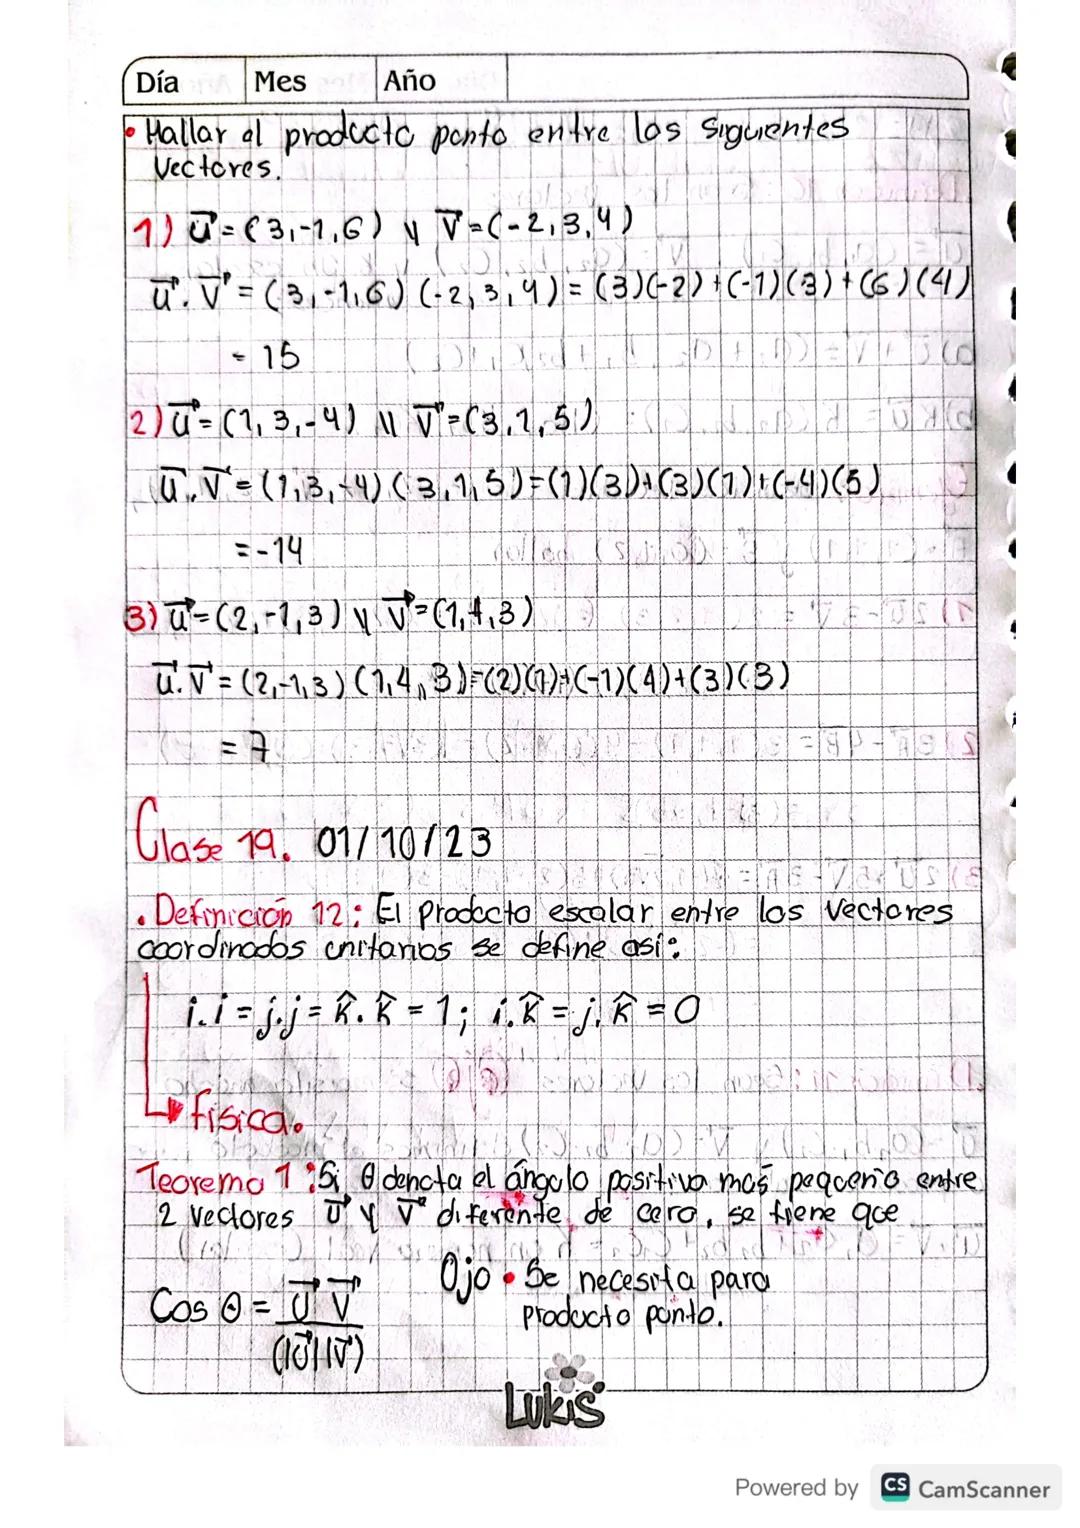 Día Mes Año
• Hallar el producto punto entre los siguientes
vectores.
1) u⃗ = (3,-1,6) y v⃗ = (-2,3,4)
u⃗ . v⃗ = (3,-1,6) (-2,3,4) = (3)(-2)+(-1)(3)+(6)(4)
= 15
2) u⃗ = (1,3,-4) y v⃗ = (3,1,5)
u⃗ . v⃗ = (1,3,-4) (3,1,5) = (1)(3)+(3)(1)+(-4)(5)
= -14
3) u⃗ = (2,-1,3) y v⃗ = (1,4,3)
u⃗ . v⃗ = (2,-1,3) (1,4,3) = (2)(1)+(-1)(4)+(3)(3)
= 7
Clase 19. 01/10/23
• Definición 12: El producto escalar entre los vectores
coordinados unitarios se define así:
i.i = j.j = k̂.k̂ = 1; i.k̂ = j.k̂ = 0
física.
Teorema 1: Si θ denota el ángulo positivo mas pequeño entre
2 vectores u⃗ y v⃗ diferente de cero, se tiene que
Cos θ = u⃗ v⃗ / (|u⃗| |v⃗|)
Ojo • Se necesita para
producto punto.
Lukis
Powered by CS CamScanner